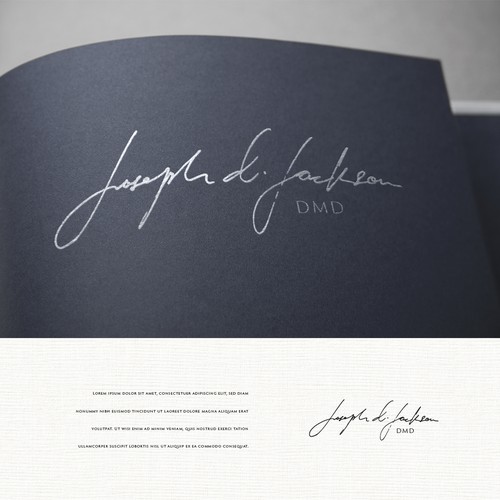 Joseph d. Jackson
DMD
LOREM IPSUM DOLOR SIT AMET, CONSECTETUER ADIPISCING ELIT, SED DIAM
NONUMMY NIBH EUISMOD TINCIDUNT UT LAOREET DOLORE MAGNA ALIQUAM ERAT
VOLUTPAT. UT WISI ENIM AD MINIM VENIAM, QUIS NOSTRUD EXERCI TATION
ULLAMCORPER SUSCIPIT LOBORTIS NISL UT ALIQUIP EX EA COMMODO CONSEQUAT.
Joseph d. Jackson
DMD